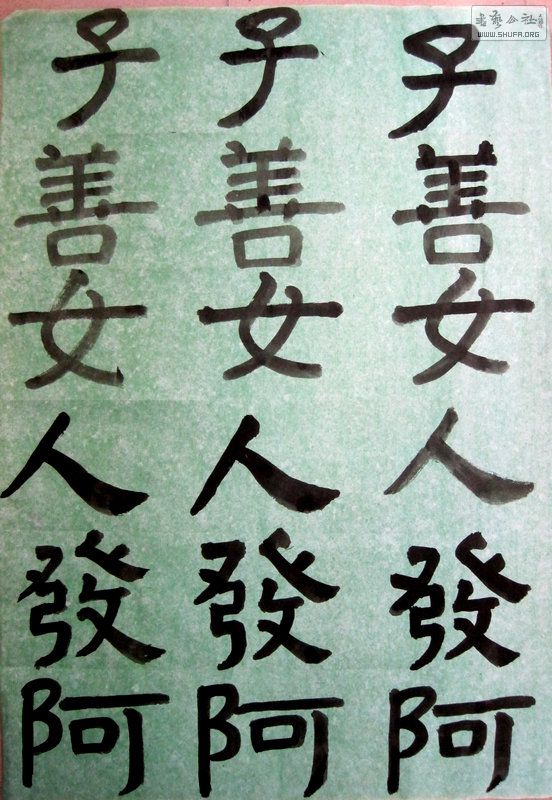 子善女人發阿
子善女人發阿
子善女人發阿
書藝公社
WWW.SHUFA.ORG